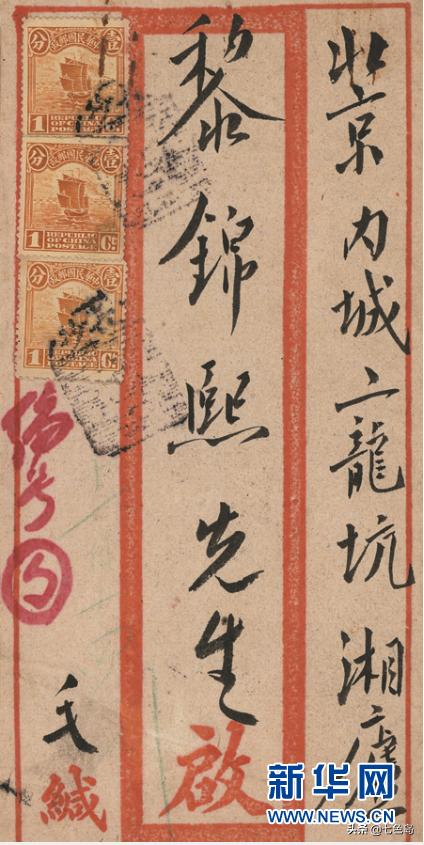 北京内城二龍坑湘廬
黎錦熙先生啟
中華民國郵政
壹分
1 REPUBLIC OF CHINA POSTAGE Ct.
中華民國郵政
壹分
1 REPUBLIC OF CHINA POSTAGE Ct.
中華民國郵政
壹分
1 REPUBLIC OF CHINA POSTAGE Ct.
编号
毛緘
新华网
NEWS.CN
头条@七色岛